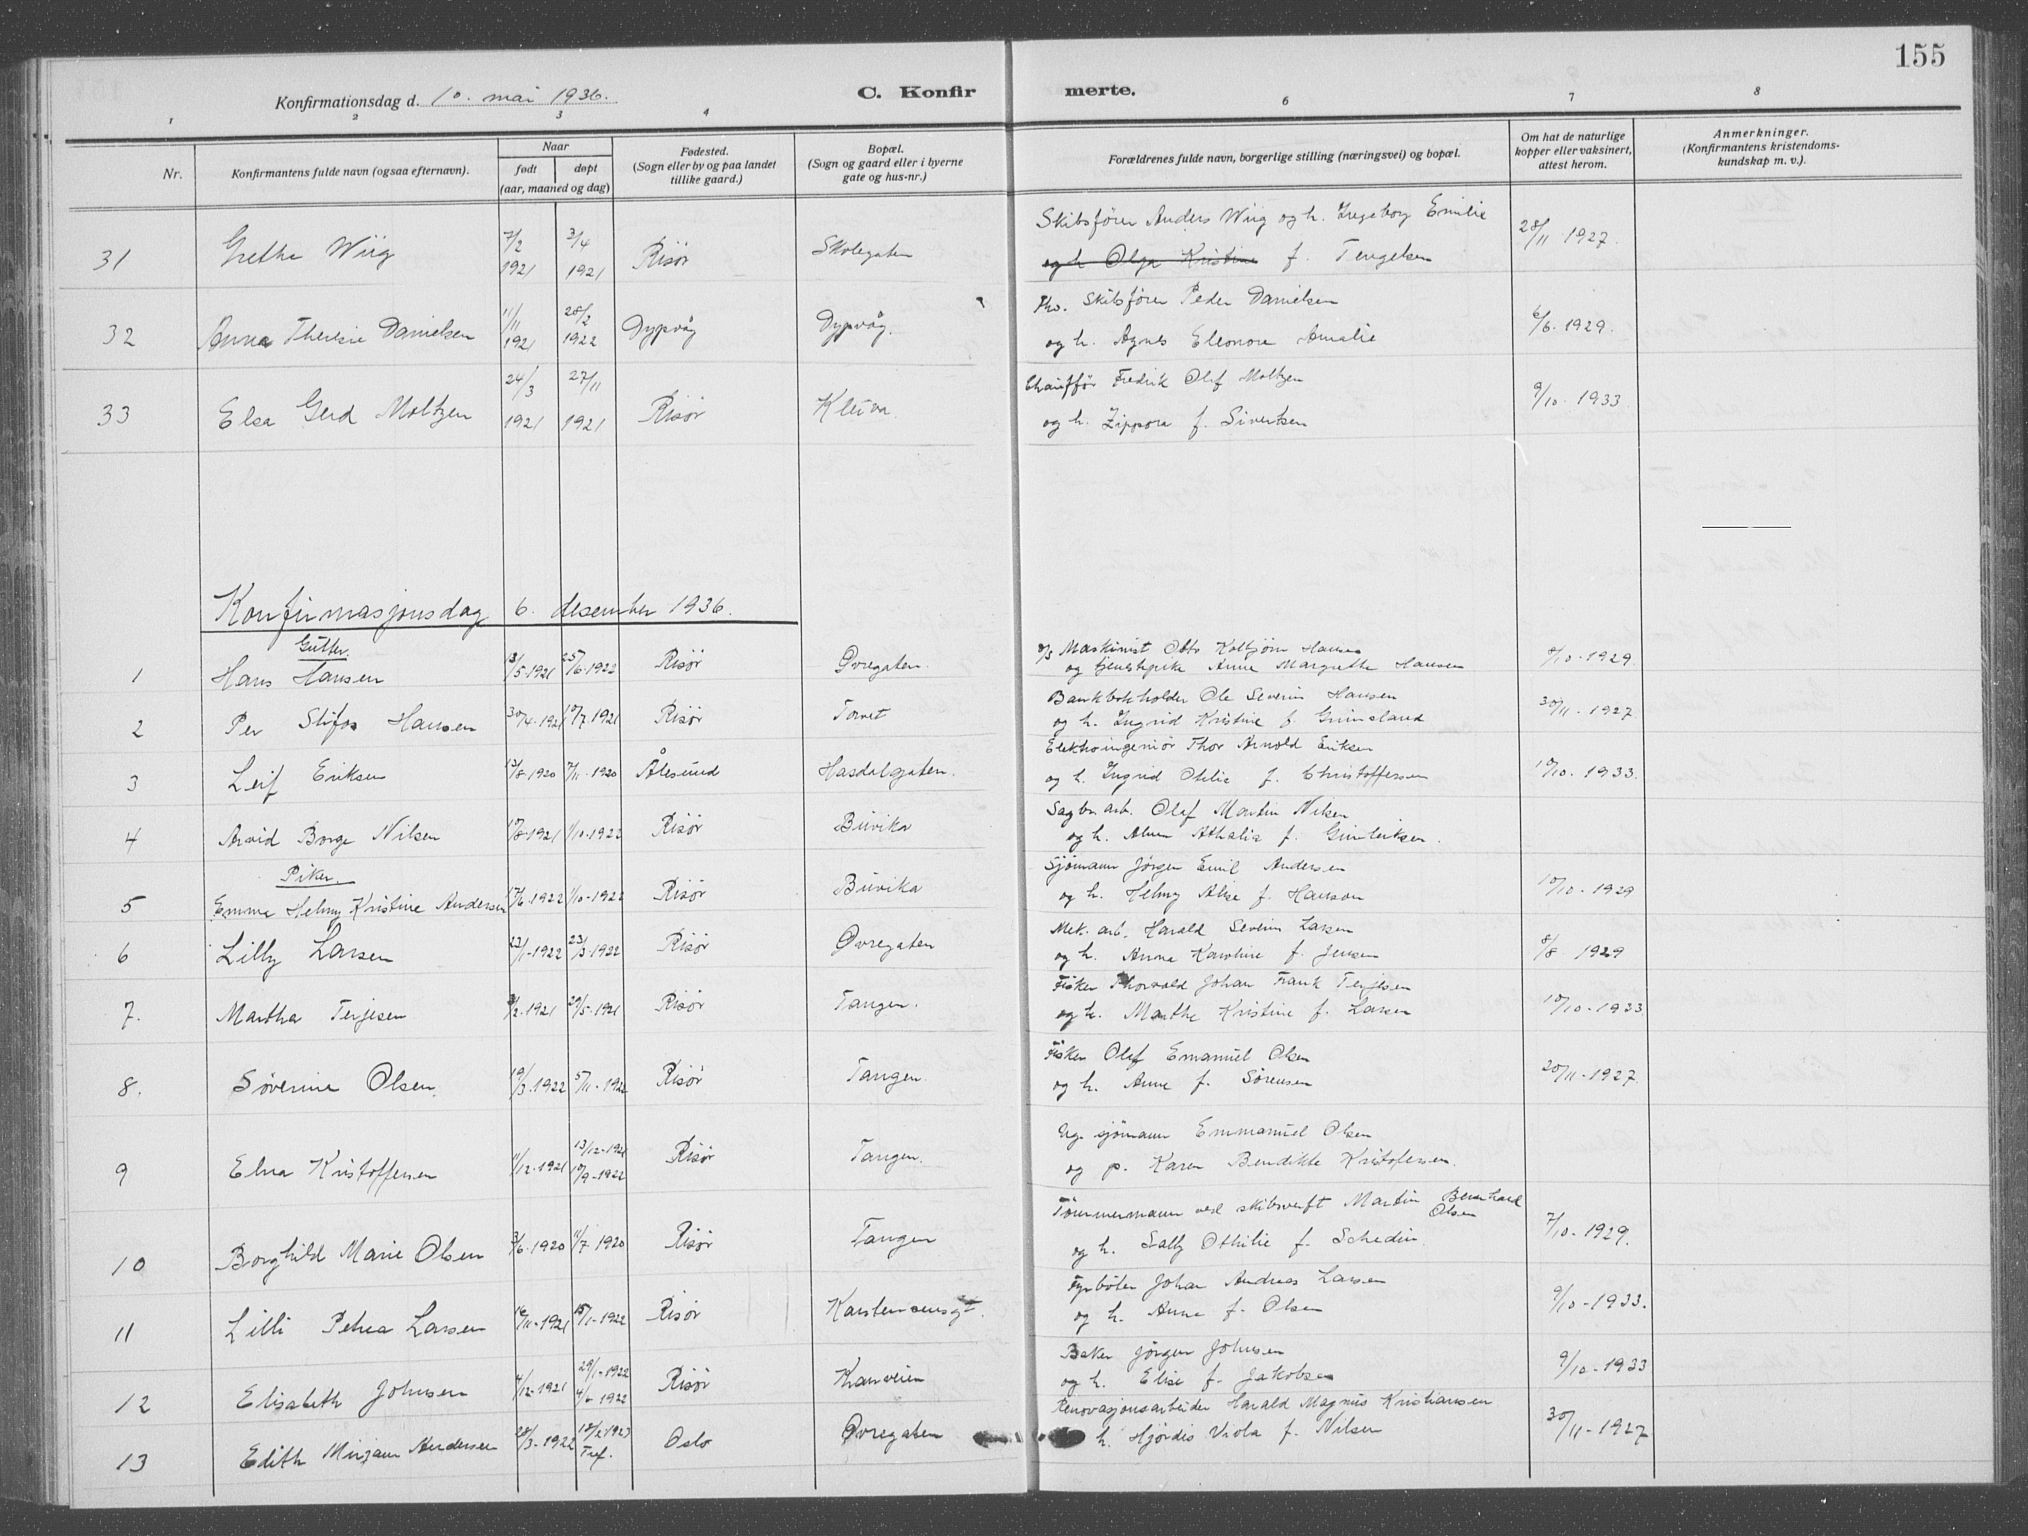 155
Konfirmationsdag d. 10. mai 1936.
C. Konfirmerte.
1 2 3 4 6 7 8
Nr.
Konfirmantens fulde navn (ogsaa efternavn).
Naar
født døpt
(aar, maaned og dag)
Fødested.
(Sogn eller by og paa landet
tillike gaard.)
Bopæl.
(Sogn og gaard eller i byerne
gate og hus-nr.)
Forældrenes fulde navn, borgerlige stilling (næringsvei) og bopæl.
Om hat de naturlige
kopper eller vaksinert,
attest herom.
Anmerkninger.
(Konfirmantens kristendoms-
kundskap m. v.).
31 Grethe Wiig 7/2 1921 3/4 1921 Risør Skolegaten
Skibsfører Anders Wiig og h. Ingeborg Emilie
og h Olga Kristine f. Tengelsen
28/11 1927.
32 Anna Therese Danielsen 11/11 1921 28/2 1922 Dypvåg Dypvåg.
Fhv. Skibsfører Peder Danielsen
og h. Agnes Eleonore Amalie
6/6. 1929.
33 Elsa Gerd Moltzen 24/3 1921 27/11 1921 Risør Kleiva
Chauffør Fredrik Olaf Moltzen
og h. Zippora f. Sivertsen
9/10. 1933
Konfirmasjonsdag 6. desember 1936.
Gutter.
1 Hans Hansen 13/5-1921 25/6-1922 Risør Øvregaten.
Maskinist Otto Kolbjørn Hansen
og tjenestepike Anne Margrethe Hansen
9/10-1929.
2 Per Hansen 30/4-1921 10/7-1921 Risør Torvet
Bankbokholder Ole Severin Hansen
og h. Ingrid Kristine f. Grimsland
30/11-1927
3 Leif Eriksen 13/8-1920 7/11-1920 Ålesund Hasdalgaten.
Elektroingeniør Thor Arnold Eriksen
og h. Ingrid Otilie f. Christoffersen
10/10. 1933.
4 Arvid Borge Nilsen 17/8-1921 1/10-1922 Risør Buvika
Sagbr. arb. Olaf Martin Nilsen
og h. Alma Athalie f.
Piker.
5 Emma Helmy Kristine Andersen 17/6-1922 1/10-1922 Risør Buvika
Sjømann Jørgen Emil Andersen
og h. Helmy Alise f. Hanson
10/10-1929
6 Lilly Larsen 22/1-1922 23/3-1922 Risør Øvregaten
Mek. arb. Harald Severin Larsen
og h. Anna Karoline f. Jensen
8/8 1929
7. Martha Terjesen 8/2-1921 29/5-1921 Risør Tangen.
Fisker Thorvald Johan Frank Terjesen
og h. Marthe Kristine f. Larsen
10/10-1933
8. Søverine Olsen. 19/3-1922 5/11-1922 Risør Tangen.
Fisker Olaf Emanuel Olsen
og h. Anne f. Sørensen
20/11-1927.
9 Elna Kristoffersen 11/12-1921 13/12-1921 10/9-1922 Risør Tangen.
Ug. sjømann Emmanuel Olsen
og p. Karen Bendikte Kristofersen.
10 Borghild Marie Olsen 3/6-1920 11/7 1920 Risør Tangen
Tømmermann ved skibsverft Martin Bernhard Olsen
og h. Sally Othilie f. Schedin.
7/10-1929.
11 Lilli Petrea Larsen 16/11-1921 15/1-1922 Risør Karstensensgt.
Fyrbøter Johan Andreas Larsen
og h. Anna f. Olsen
9/10-1933.
12 Elisabeth Johnsen 4/12-1921 29/1-1922 4/6-1922 Risør Kranveien
Baker Jørgen Johnsen
og h. Elise f. Jakobsen
9/10-1933
13 Edith Mirjam Andersen 28/3-1922 18/2-1923 Tref. Oslo Øvregaten
Renovasjonsarbeider Harald Magnus Kristiansen
h. Hjørdis Viola f. Nilsen
30/11-1927